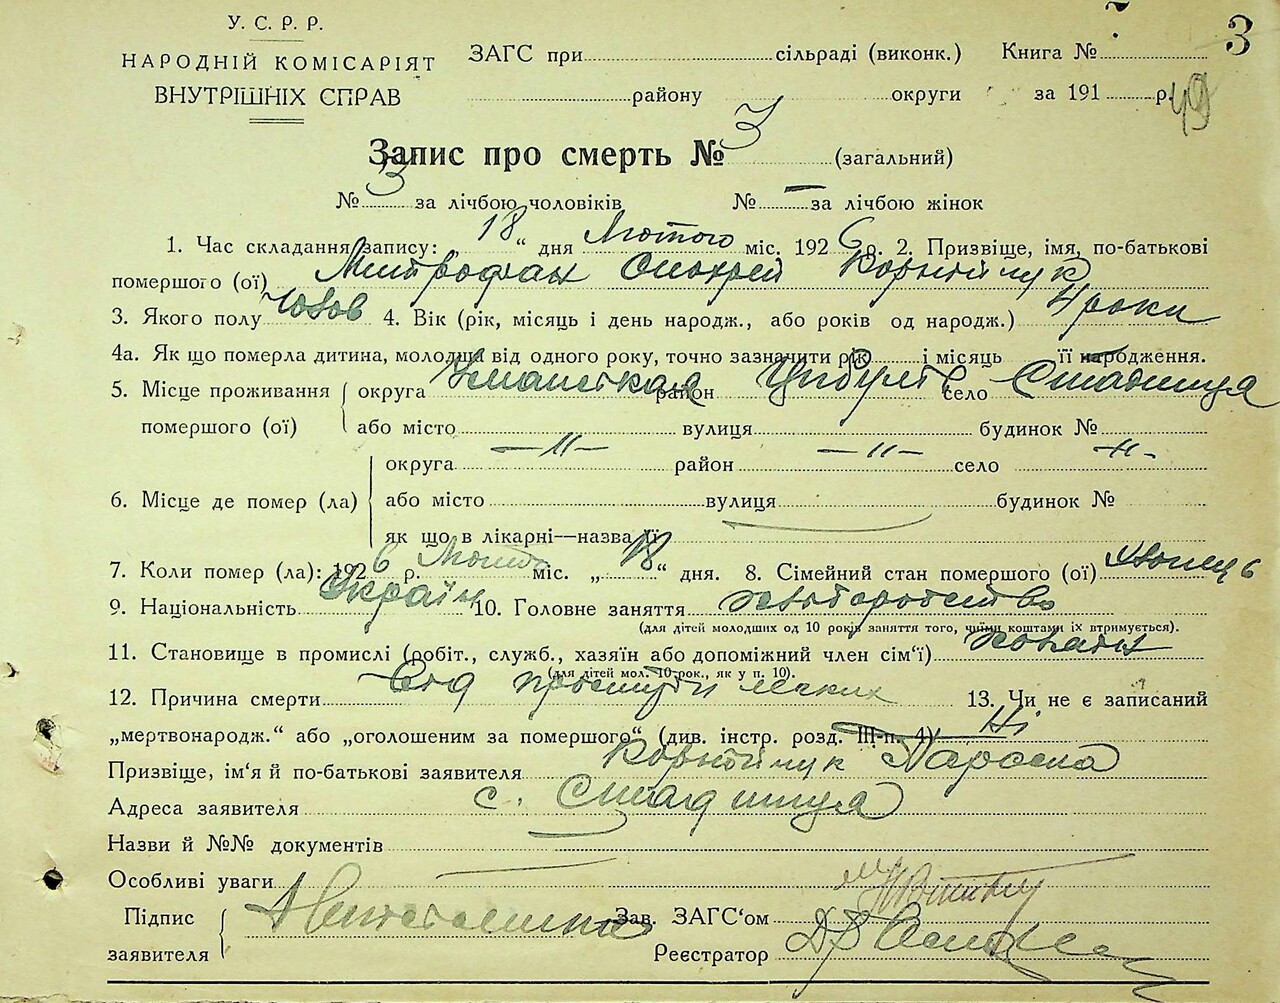 3
У. С. Р. Р.
НАРОДНІЙ КОМІСАРІЯТ
ВНУТРІШНІХ СПРАВ
ЗАГС при сільраді (виконк.) Книга №
району округи за 191 р. 49
Запис про смерть № 3 (загальний)
№ 3 за лічбою чоловіків № — за лічбою жінок
1. Час складання запису: „18“ дня Лютого міс. 1926 р. 2. Призвіще, імя, по-батькові
помершого (ої) Митрофан Корнійчук
3. Якого полу чолов 4. Вік (рік, місяць і день народж., або років од народж.) 4 роки
4а. Як що померла дитина, молодша від одного року, точно зазначити рік і місяць її народження.
5. Місце проживання округа Уманская район Цибулів село Стадница
помершого (ої) або місто вулиця будинок №
6. Місце де помер (ла) округа —"— район —"— село -"-
або місто вулиця будинок №
як що в лікарні—назва її
7. Коли помер (ла): 1926 р. Лютого міс. „18“ дня. 8. Сімейний стан помершого (ої) хлопець
9. Національність Україн 10. Головне заняття хліборобство
(для дітей молодших од 10 років заняття того, чиїми коштами їх втримується).
11. Становище в промислі (робіт., служб., хазяїн або допоміжний член сім‘ї)
(для дітей мол. 10 рок., як у п. 10).
12. Причина смерти Від простуди легких 13. Чи не є записаний
„мертвонародж.“ або „оголошеним за помершого“ (див. інстр. розд. III-п. 4) Ні
Призвіще, ім‘я й по-батькові заявителя Корнійчук
Адреса заявителя с. Стадница
Назви й №№ документів
Особливі уваги
Підпис
заявителя
Зав. ЗАГС‘ом
Реєстратор